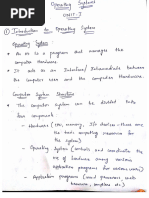 Operating Systems
UNIT-I
① Introduction to Operating System
Operating System
An OS is a program that manages the
computer hardware.
It acts as an Interface/Intermediate between
the computer user and the computer hardware.
Computer System Structure
The computer system can be divided into
four component
- Hardware (CPU, memory, I/O devices - these are
the basic computing resource for
the system)
- Operating System (controls and coordinates the
use of hardware among various
application programs for various users)
- Application programs (word processors, web
browsers, compilers etc.)